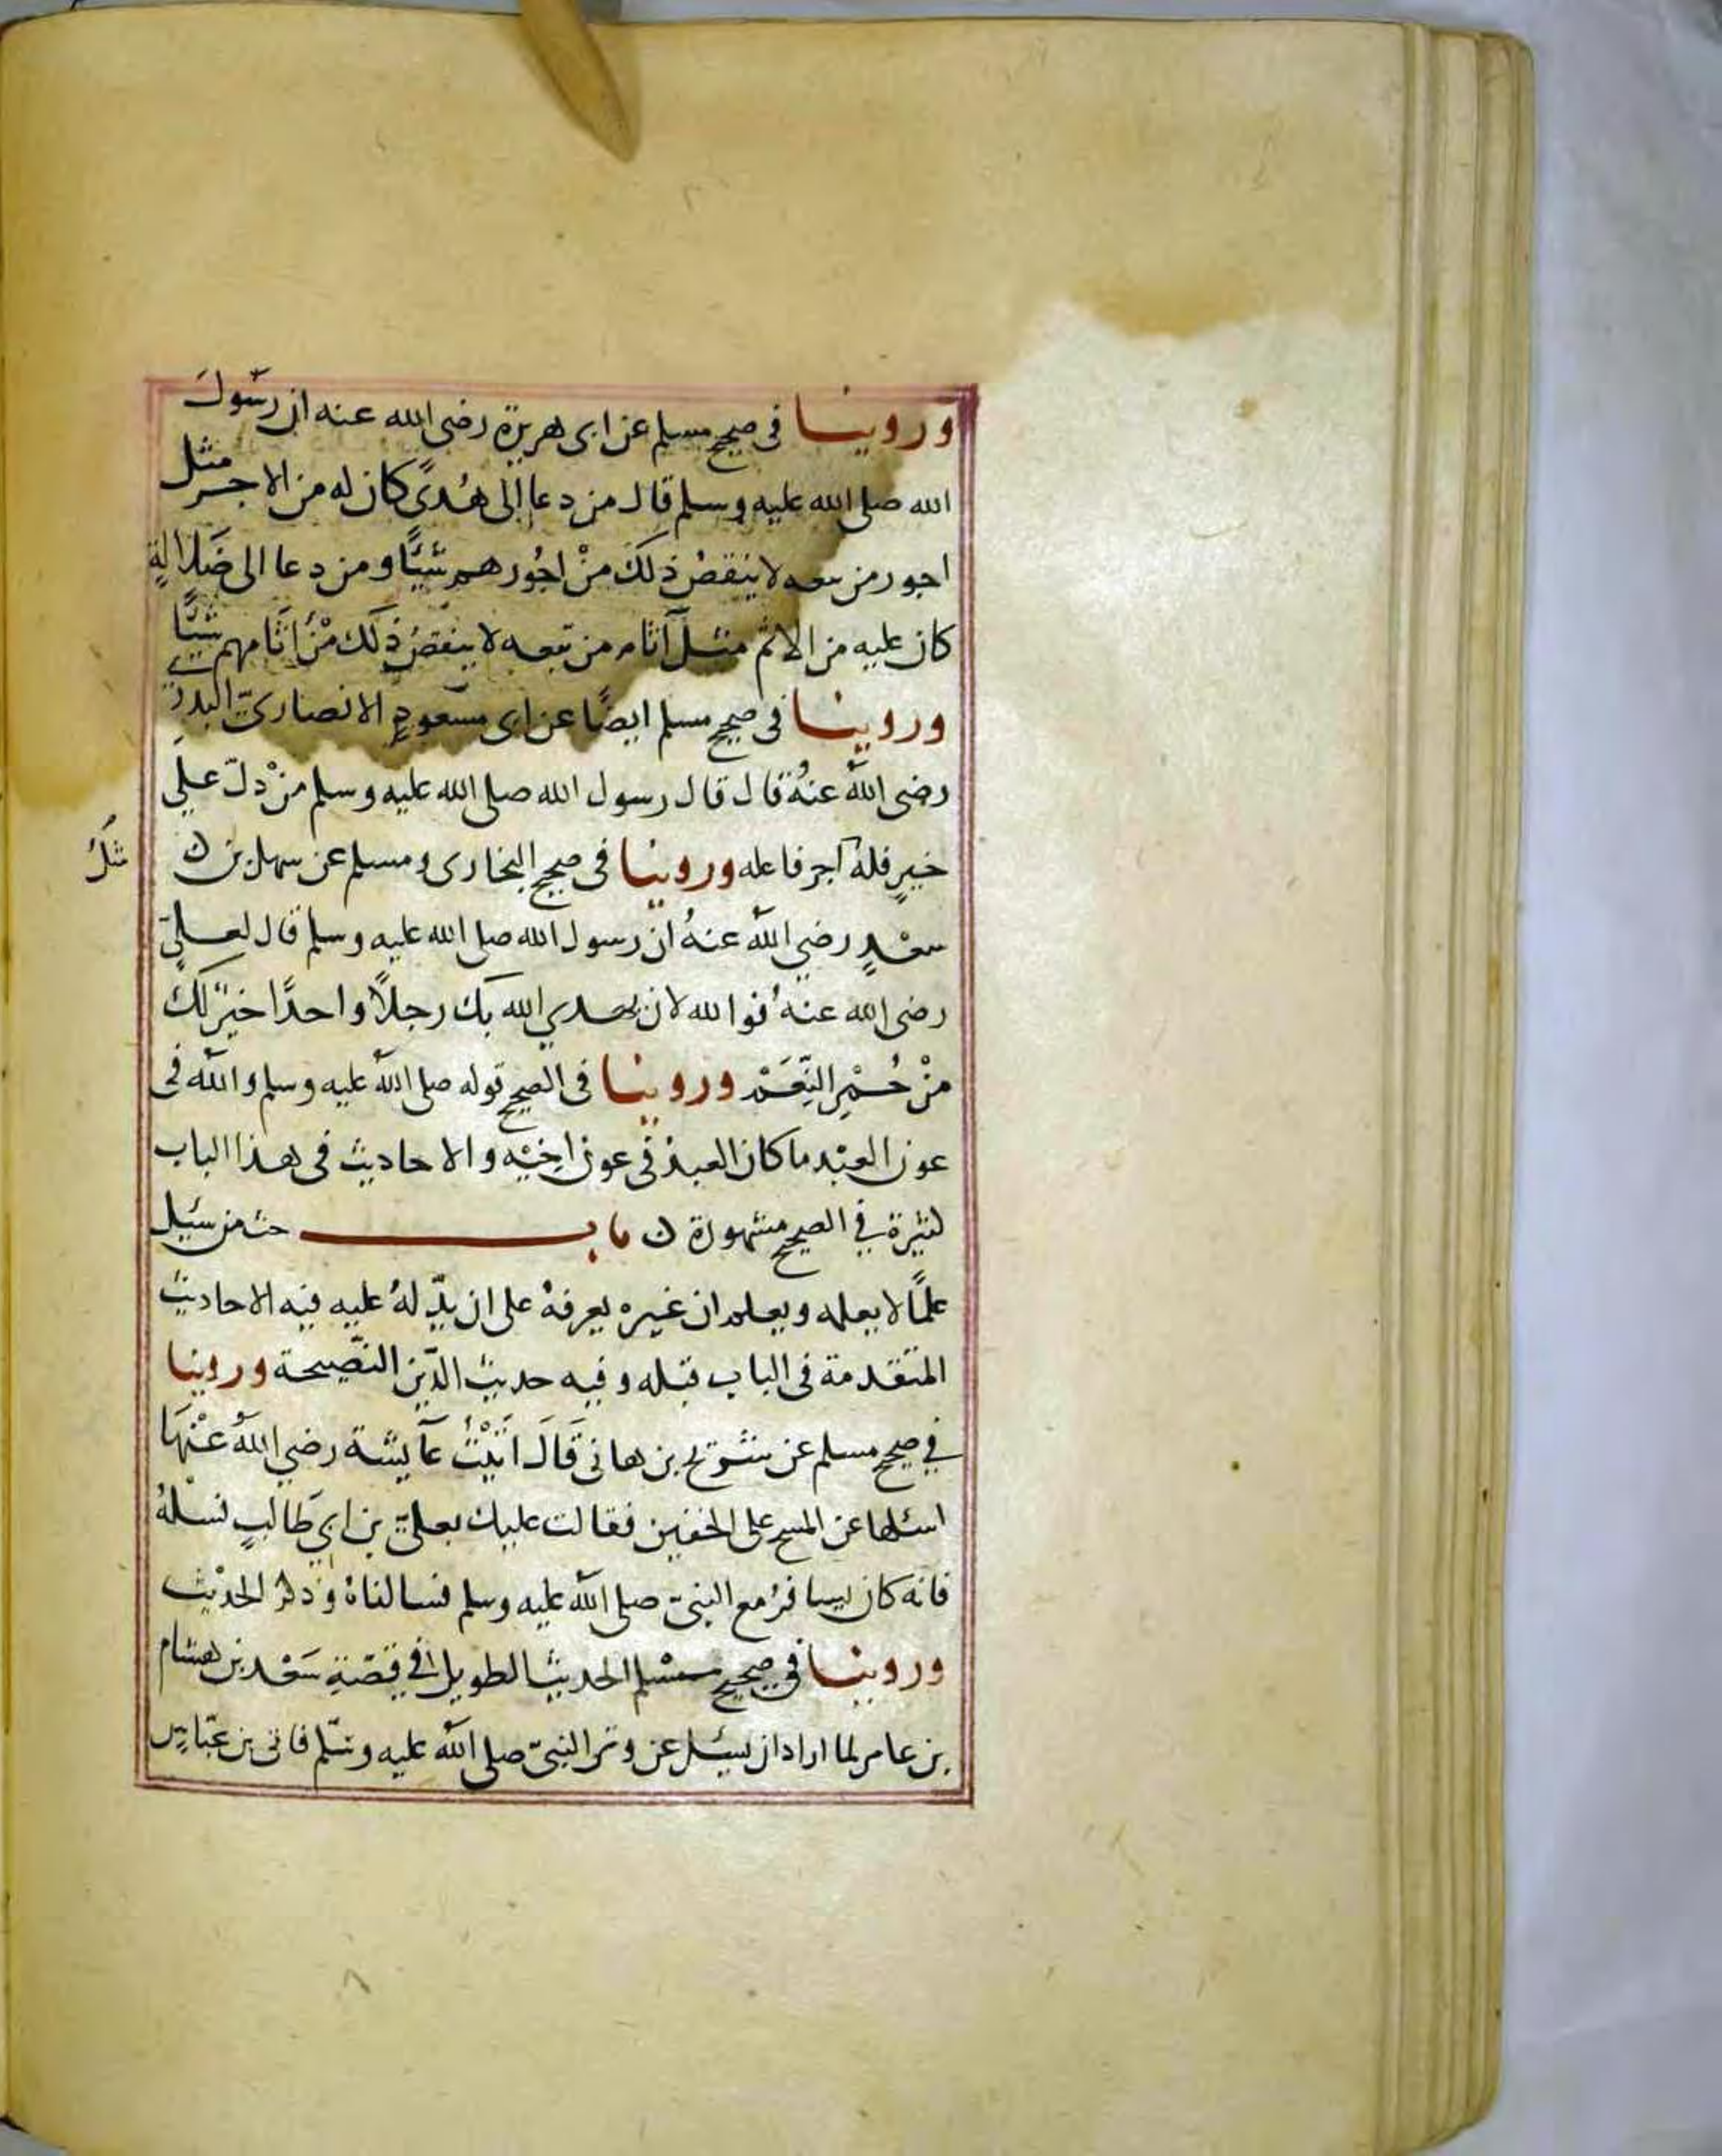 وروينا في صحيح مسلم عن ابى هريرة رضى الله عنه ان رسول
الله صلى الله عليه وسلم قال من دعا إلى هُدىً كان له من الاجر مثل
اجور من تبعه لا ينقصُ ذلكَ منْ اجُورهم شيئًا ومن دعا الى ضَلالةٍ
كان عليه من الاثم مثلُ آثام من تبعه لا ينقصُ ذلكَ منْ اثامهم شيئًا
وروينا فى صحيح مسلم ايضًا عن ابى مسعودٍ الانصارىّ البدرى
رضى اللهُ عنهُ قال قال رسول الله صلى الله عليه وسلم منْ دلّ على
خيرٍ فلهُ اجر فاعله وروينا فى صحيح البخارى ومسلم عن سهل بن
مثلُ
سعْدٍ رضي اللهُ عنهُ ان رسول الله صلى الله عليه وسلم قال لعلىّ
رضى الله عنهُ فوالله لان يهدي الله بك رجلًا واحدًا خيرٌ لك
منْ حُمْرِ النّعَمْ وروينا فى الصحيح قوله صلى اللهُ عليه وسلم واللهُ فى
عون العبْد ما كان العبدُ فى عون اخيْه والاحاديث فى هذا الباب
كثيرة في الصحيح مشهورة ن باب حث من سئل
علمًا لا يعلمه ويعلم ان غيره يعرفهُ على ان يدّلهُ عليه فيه الاحاديث
المتقدمة فى الباب قبله وفيه حديث الدّين النّصيحة وروينا
في صحيح مسلم عن شريح بن هانى قَالَ اتَيْتُ عآيشة رضي اللهُ عنْهَا
اسئلها عن المسح على الخفين فقالت عليك بعلىّ بن ابي طالبٍ فسئلهُ
فانه كان يسافرُ مع النبىّ صلى اللهُ عليه وسلم فسالناهُ وذكرُ الحديْث
وروينا فى صحيح مسْلم الحديث الطويل في قصّةِ سَعْد بن هشام
بن عامر لما اراد ان يسئل عن وتر النبىّ صلى اللهُ عليه وسّلم فاتى بن عبّاسٍ